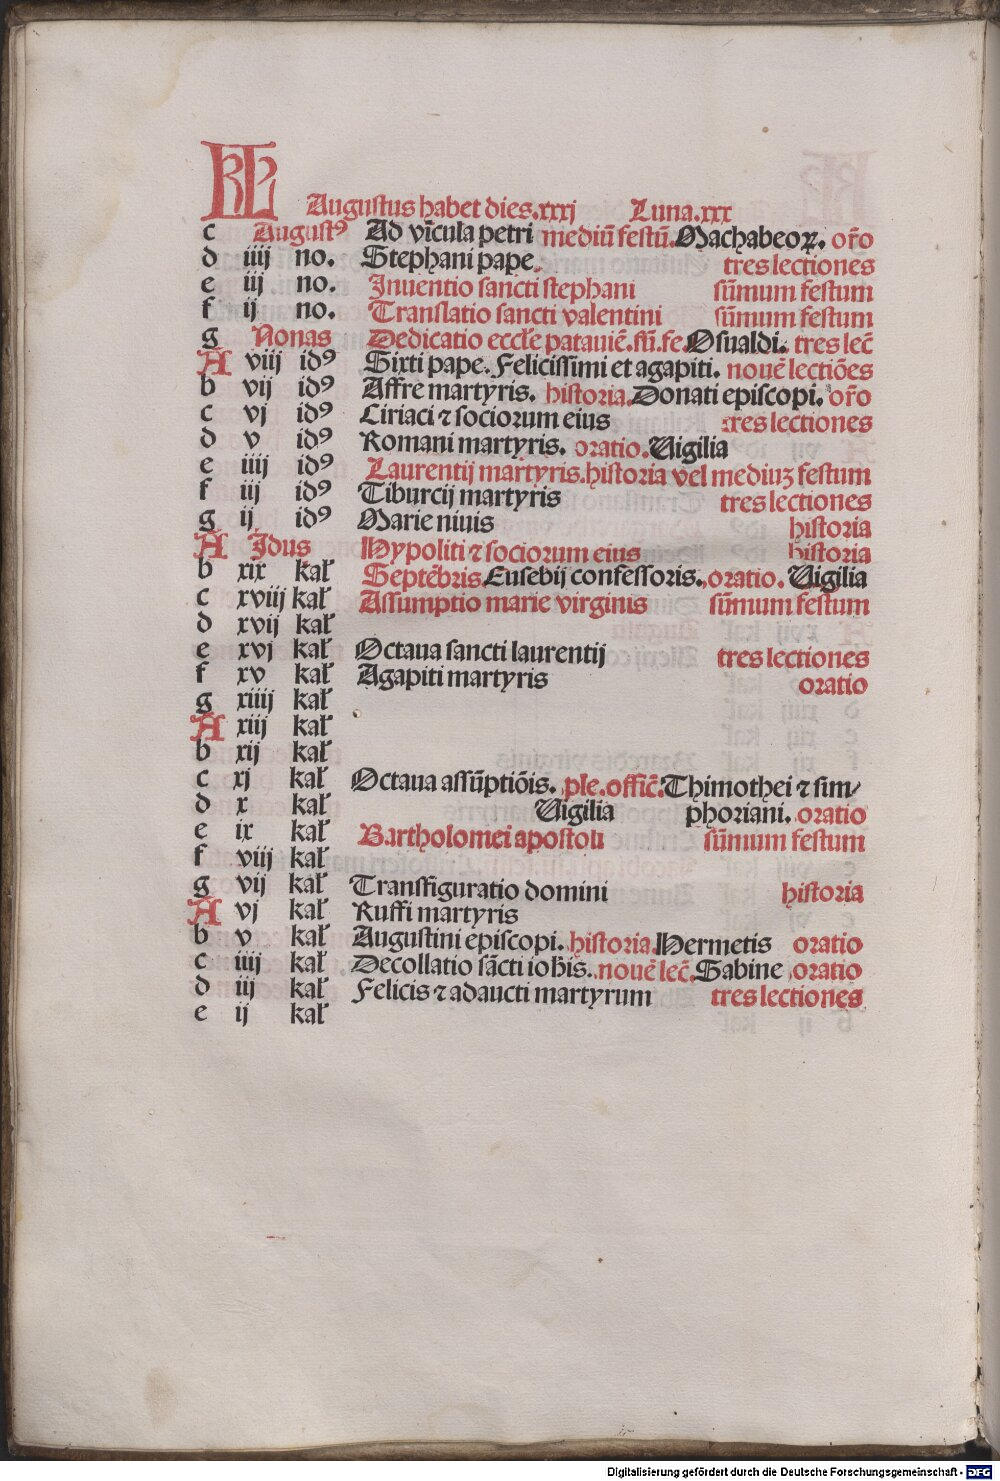 KL Augustus habet dies.xxxj Luna.xxx
c Augustꝰ Ad vīcula petri mediū festū.Machabeoꝝ. or̄o
d iiij no. Stephani pape. tres lectiones
e iij no. Inuentio sancti stephani sūmum festum
f ij no. Translatio sancti valentini sūmum festum
g Nonas Dedicatio eccl̄e patauiē.sū.fe.Osualdi. tres lec̄
A viij idꝰ Sixti pape.Felicissimi et agapiti. nouē lectiōes
b vij idꝰ Affre martyris. historia.Donati episcopi. or̄o
c vj idꝰ Ciriaci ⁊ sociorum eius tres lectiones
d v idꝰ Romani martyris. oratio.Uigilia
e iiij idꝰ Laurentij martyris.historia vel mediuʒ festum
f iij idꝰ Tiburcij martyris tres lectiones
g ij idꝰ Marie niuis historia
A Idus Hypoliti ⁊ sociorum eius historia
b xix kał Septēbris.Eusebij confessoris.oratio. Uigilia
c xviij kał Assumptio marie virginis sūmum festum
d xvij kał
e xvj kał Octaua sancti laurentij tres lectiones
f xv kał Agapiti martyris oratio
g xiiij kał
A xiij kał
b xij kał
c xj kał Octaua assūptiōis. ple.offic̄.Thimothei ⁊ sim/
d x kał Uigilia phoriani. oratio
e ix kał Bartholomei apostoli sūmum festum
f viij kał
g vij kał Transfiguratio domini historia
A vj kał Ruffi martyris
b v kał Augustini episcopi. historia.Hermetis oratio
c iiij kał Decollatio sācti ioh̄is. nouē lec̄.Sabine oratio
d iij kał Felicis ⁊ adaucti martyrum tres lectiones
e ij kał
Digitalisierung gefördert durch die Deutsche Forschungsgemeinschaft - DFG